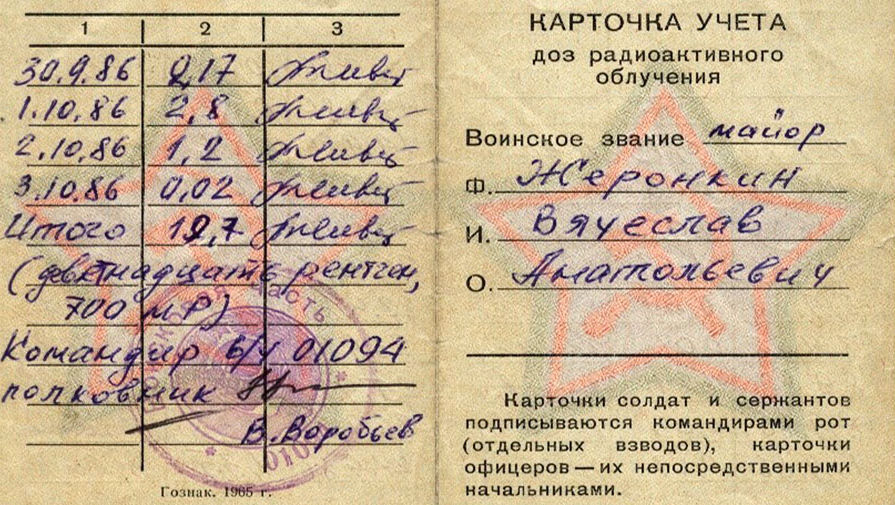 1 2 3
30.9.86 0,17
1.10.86 2,8
2.10.86 1,2
3.10.86 0,02
Итого 19,7
(девятнадцать рентген,
700 мР)
Командир в/ч 01094
полковник
В. Воробьев
Гознак. 1965 г.
КАРТОЧКА УЧЕТА
доз радиоактивного
облучения
Воинское звание майор
Ф. Жеронкин
И. Вячеслав
О. Анатольевич
Карточки солдат и сержантов
подписываются командирами рот
(отдельных взводов), карточки
офицеров — их непосредственными
начальниками.